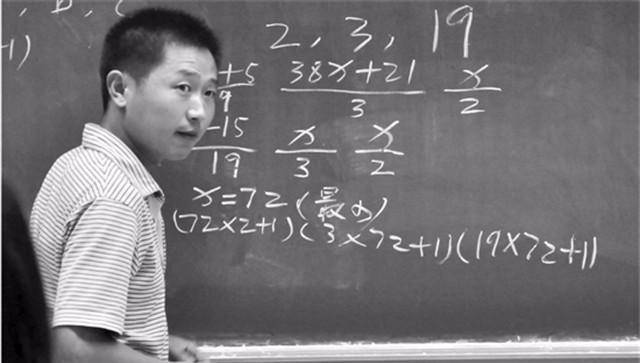 2, 3, 19
+5/9 (38x+21)/3 x/2
-15/19 x/3 x/2
x=72 (最小)
(72×2+1)(3×72+1)(19×72+1)
+1)